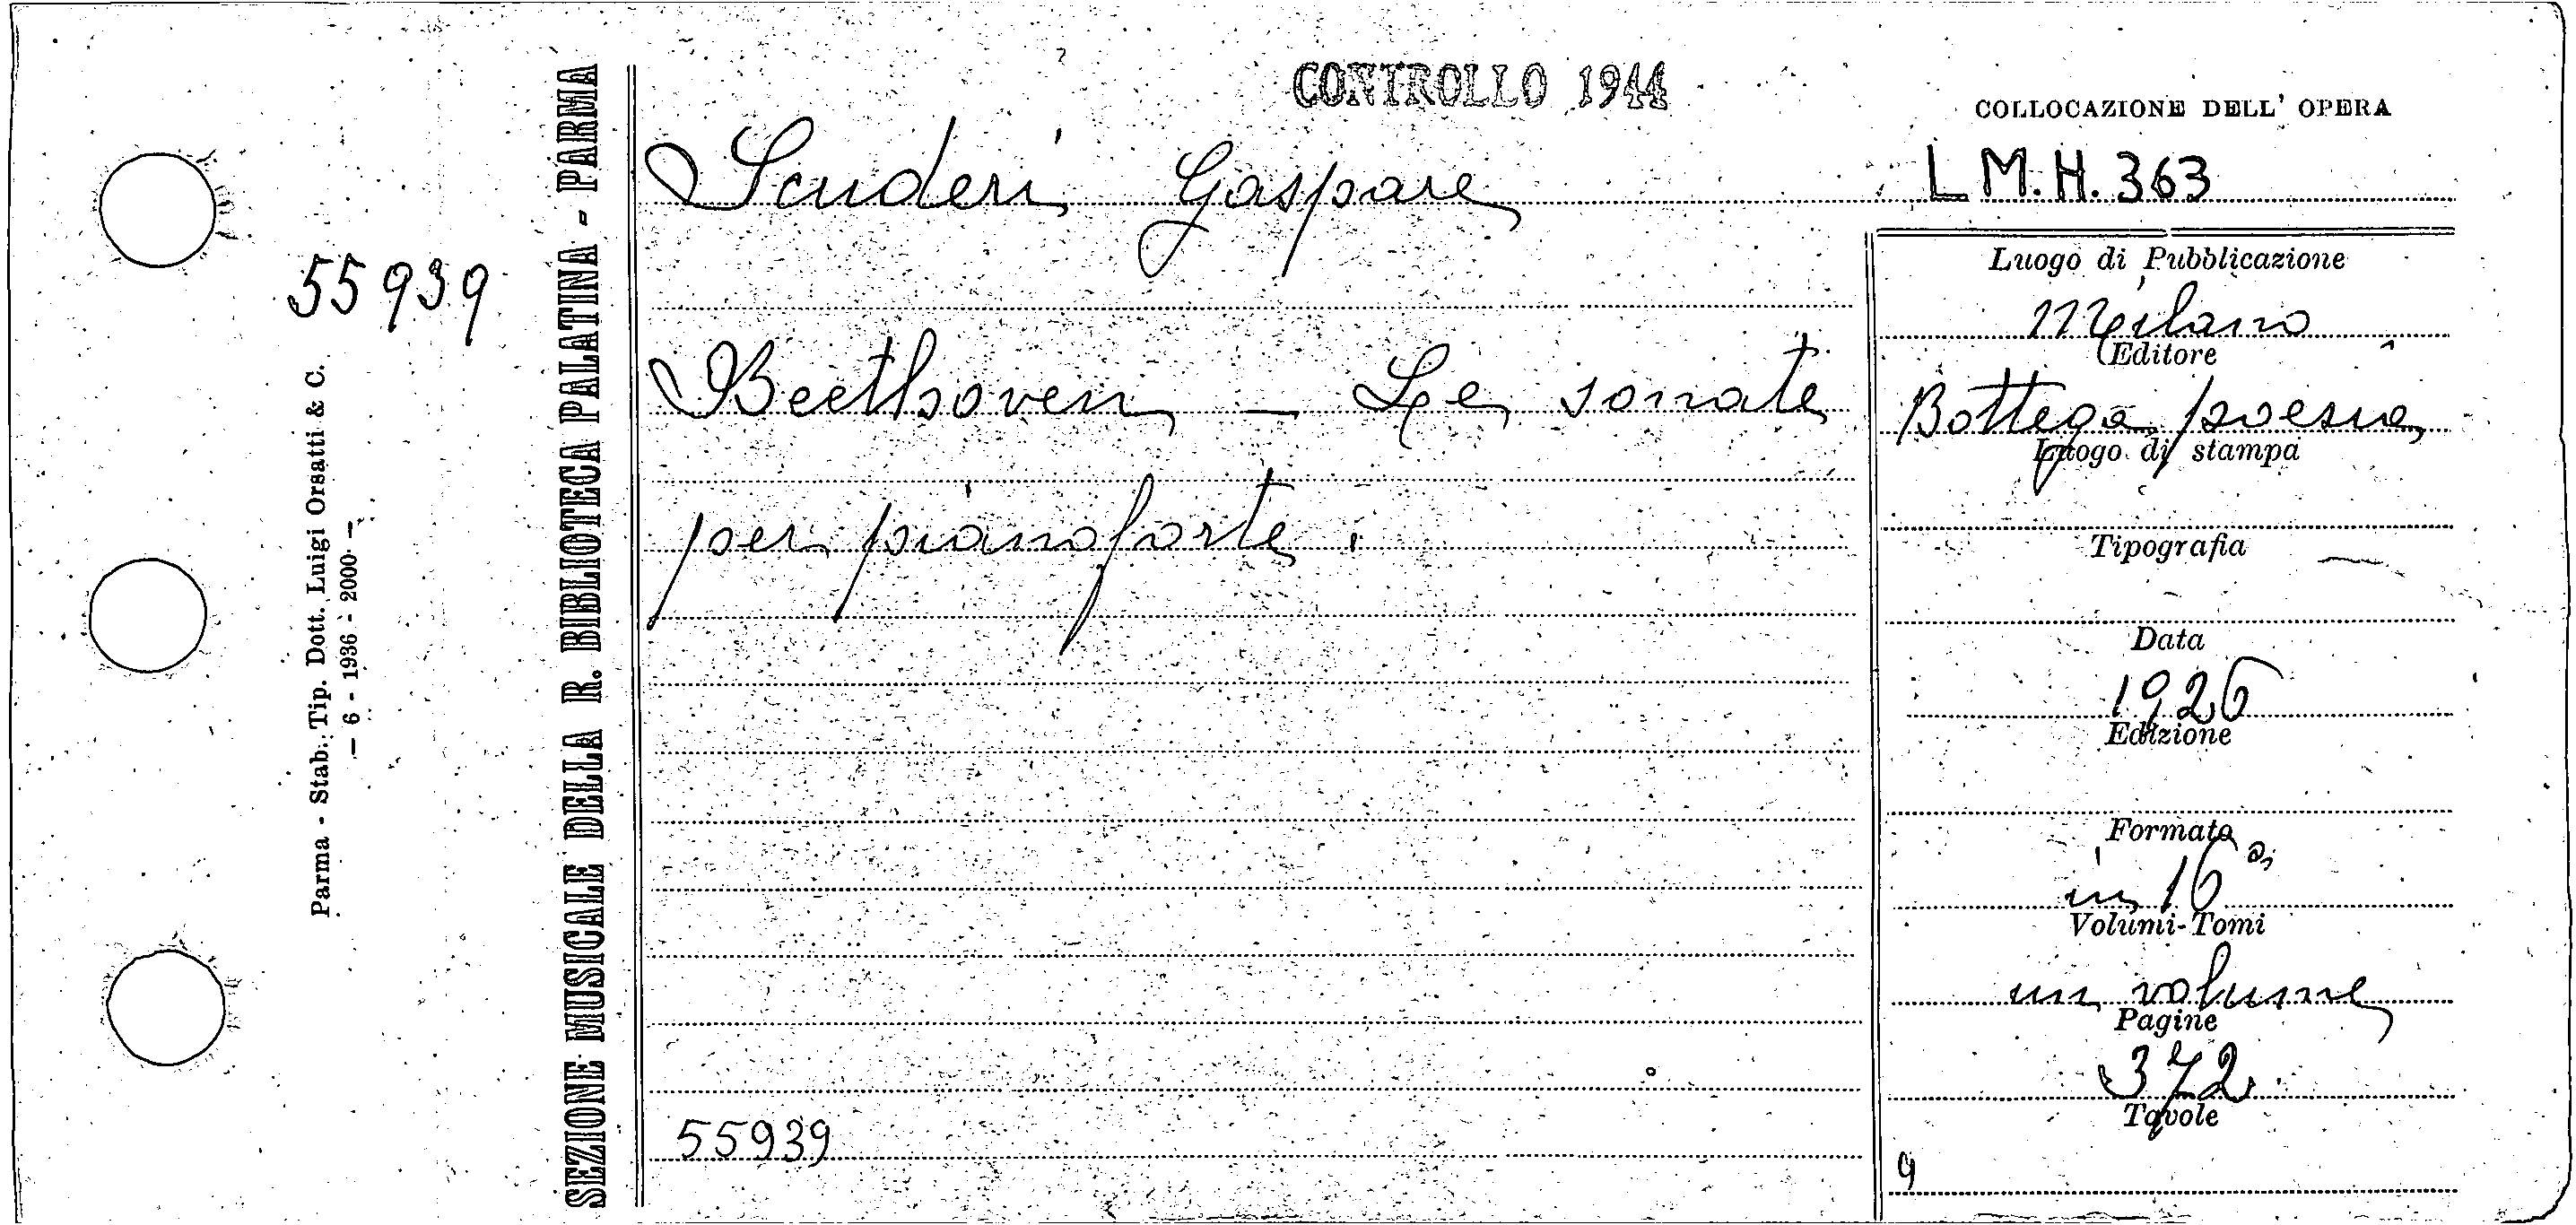 55939
Parma - Stab. Tip. Dott. Luigi Orsatti & C.
— 6 - 1936 - 2000 —
SEZIONE MUSICALE DELLA R. BIBLIOTECA PALATINA - PARMA
CONTROLLO 1944
Scuderi Gaspare
Beethoven - Le sonate
per pianoforte.
55939
COLLOCAZIONE DELL' OPERA
L M. H. 363
Luogo di Pubblicazione
Milano
Editore
Bottega poesia
Luogo di stampa
Tipografia
Data
1926
Edizione
Formato
in 16°
Volumi-Tomi
un volume
Pagine
372
Tavole